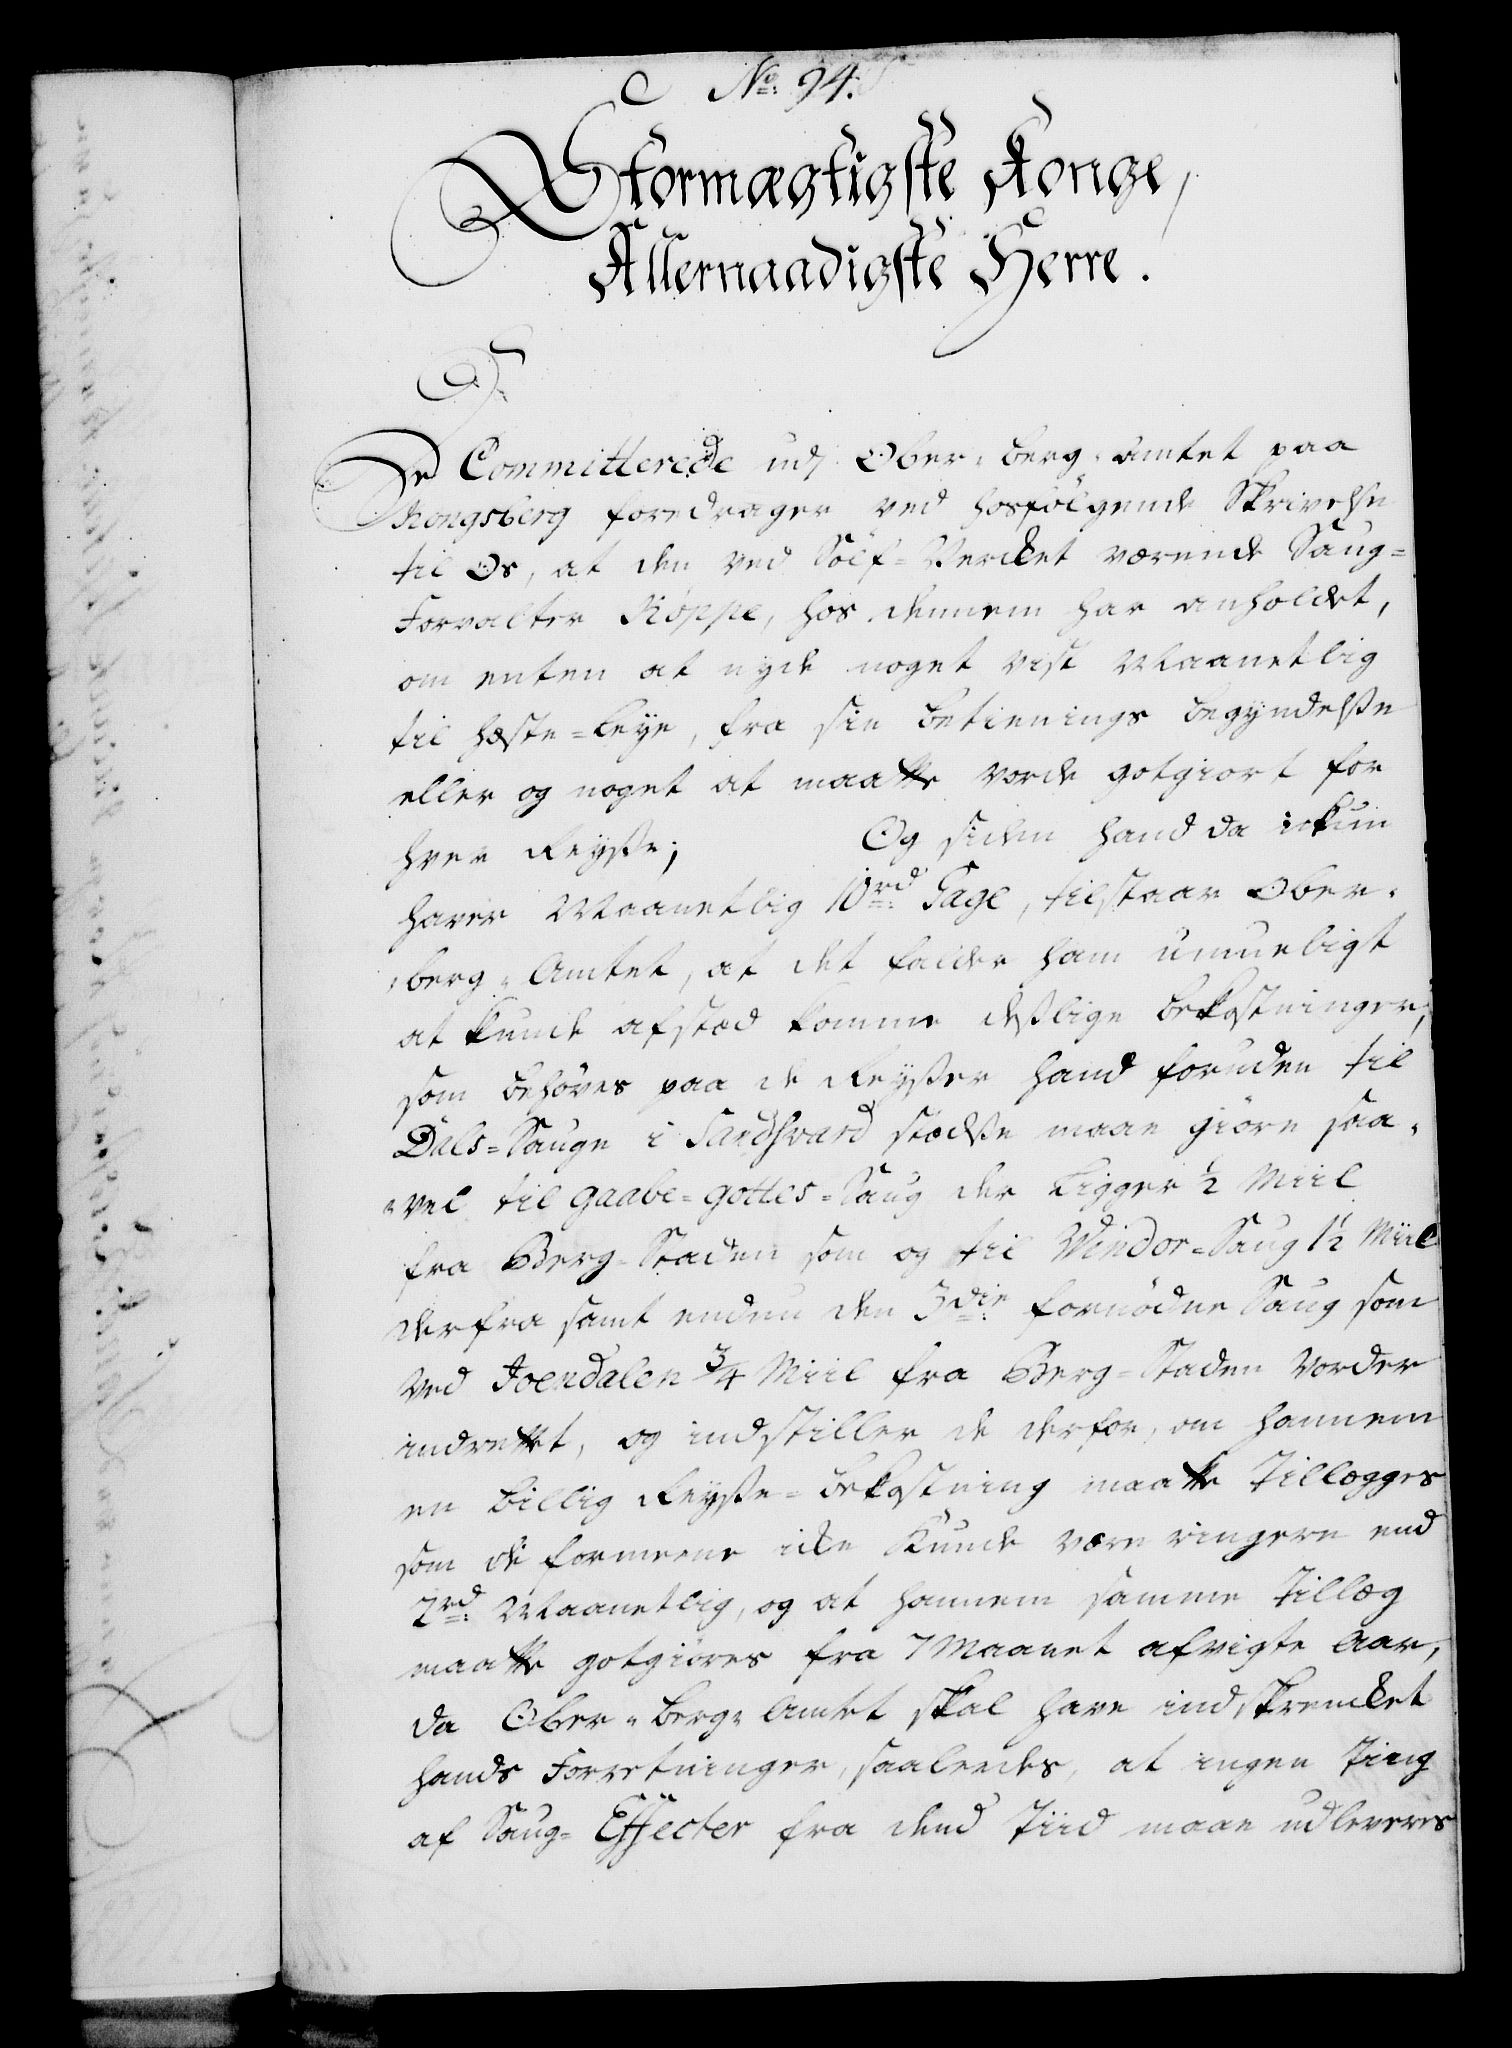 No: 94.
Stormægtigste Konge,
Allernaadigste Herre.
De Committerede udj Ober-berg-amtet paa
Kongsberg foredrager ved hosfölgende Skrivelse
til Os, at den ved Sölf-Vercket værende Saug-
Forvalter Köppe, hos dennem har anholdet,
om enten at nyde noget vist Maanetlig
til hæste-Leye, fra sin betienings begyndelsse
eller og noget at maatte vorde gotgiort for
hver Reysse; Og siden hand da ickun
haver Maanetlig 10 rd Gage, tilstaar Ober-
berg-Amtet, at det falder ham umueligt
at kunde afstæd komme desslige bekostninger,
som behöves paa de Reysser hand foruden til
Dals-Sauge i Sandsvard stedsse maae giöre saa-
vel til Gaabe-Gottes-Saug der ligger ½ Miil
fra Berg-Staden som og til Windor-Saug 1½ Miil
derfra samt endnu den 3die fornödne Saug som
ved Joendalen ¾ Miil fra Berg-Staden vorder
indrettet, og indstiller de derfor, om hannem
en billig Reysse-bekostning maatte Tillegges
som de formeene icke kunde være ringere end
2 rd Maanetlig, og at hannem samme Tillæg
maatte gotgiöres fra 7 Maanet afvigte Aar,
da Ober-berg-Amtet skal have indskrencket
hands Forretninger, saaledes, at ingen Ting
af Saug-Effecter fra dend Tiid maae udleveres